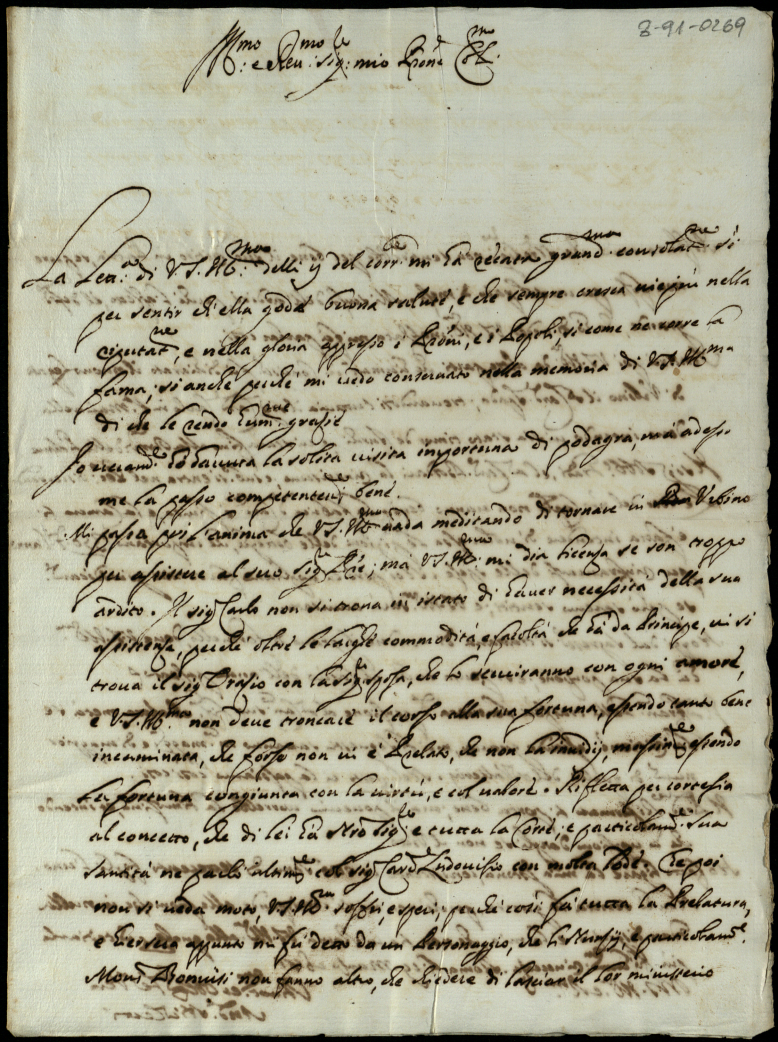 3-91-0269
Ill.mo e Reu.mo Sig.re mio Pron Col.mo
La Lett.a di V.S. Ill.ma delli ij del corr.te mi ha recata grand.ma consolat.ne sì
per sentir ch'ella gode buona salute, e che sempre cresca uiepiù nella
riputat.ne, e nella gloria appresso i Proni, e i Popoli, si come ne corre la
fama, si anche perche mi uedo conseruato nella memoria di V.S. Ill.ma
di che le rendo hum.me gratie
Io ueram.te hò hauuta la solita uisita importuna di podagra, mà adesso
me la passo competentem.te bene.
Mi passa poi l'anima che V.S. Ill.ma uada meditando di tornare in Vrbino
per assistere al suo Sig.re Pre; mà V.S. Ill.ma mi dia licenza se son troppo
ardito. Il Sig.r Carlo non si troua in istato di hauer necessità della sua
assistenza, perche oltre le larghe commodità, e facoltà che hà da Principe, ui si
troua il Sig.r Oratio con la Sig.ra sposa, che lo seruiranno con ogni amore,
e V.S. Ill.ma non deue troncare il corso alla sua fortuna, essendo tanto bene
incaminata, che forse non ui è Prelato, che non la inuidij, massim.te essendo
la fortuna congiunta con la uirtù, e col ualore. Rifletta per cortesia
al concetto, che di lei hà Nro Sig.re e tutta la Corte; e particolarm.te Sua
Santità ne parlò col Sig.r Card.le Ludouisio con molta lode. Che poi
non si ueda moto, V.S. Ill.ma soffri, e speri; perche così fà tutta la Prelatura,
e hiersera appunto mi fù detto da un Personaggio, che li Nuntij, e particolarm.te
Mons.r Bonuisi non fanno altro, che chiedere di lasciar il lor ministerio